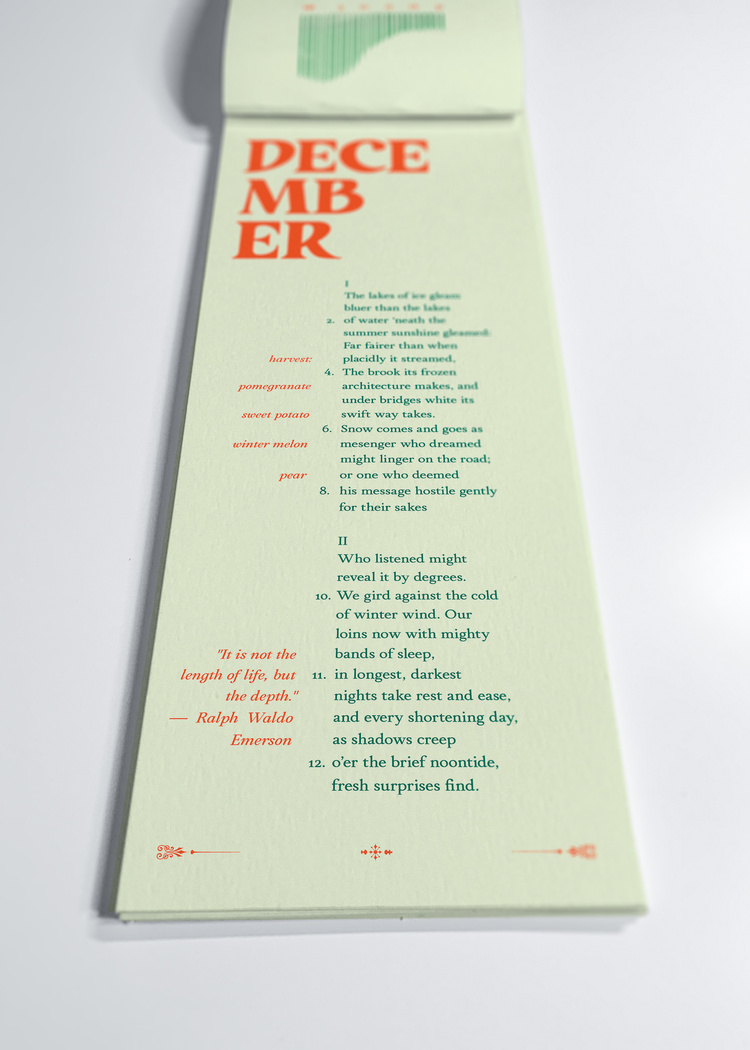 DECE
MB
ER
I
The lakes of ice gleam
bluer than the lakes
2. of water 'neath the
summer sunshine gleamed:
Far fairer than when
harvest: placidly it streamed,
4. The brook its frozen
pomegranate architecture makes, and
under bridges white its
sweet potato swift way takes.
6. Snow comes and goes as
winter melon mesenger who dreamed
might linger on the road;
pear or one who deemed
8. his message hostile gently
for their sakes
II
Who listened might
reveal it by degrees.
10. We gird against the cold
of winter wind. Our
loins now with mighty
"It is not the bands of sleep,
length of life, but 11. in longest, darkest
the depth." nights take rest and ease,
— Ralph Waldo and every shortening day,
Emerson as shadows creep
12. o'er the brief noontide,
fresh surprises find.